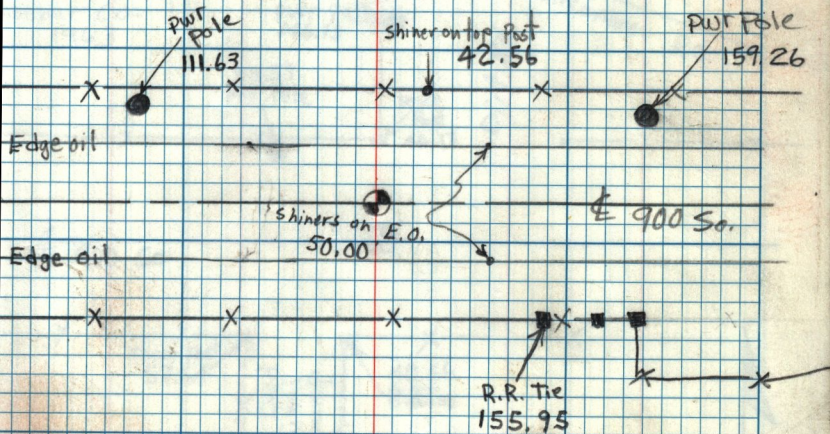 pwr
pole
111.63
shiner on top Post
42.56
pwr Pole
159.26
Edge oil
shiners on E.O.
50.00
℄ 900 So.
Edge oil
R.R. Tie
155.95